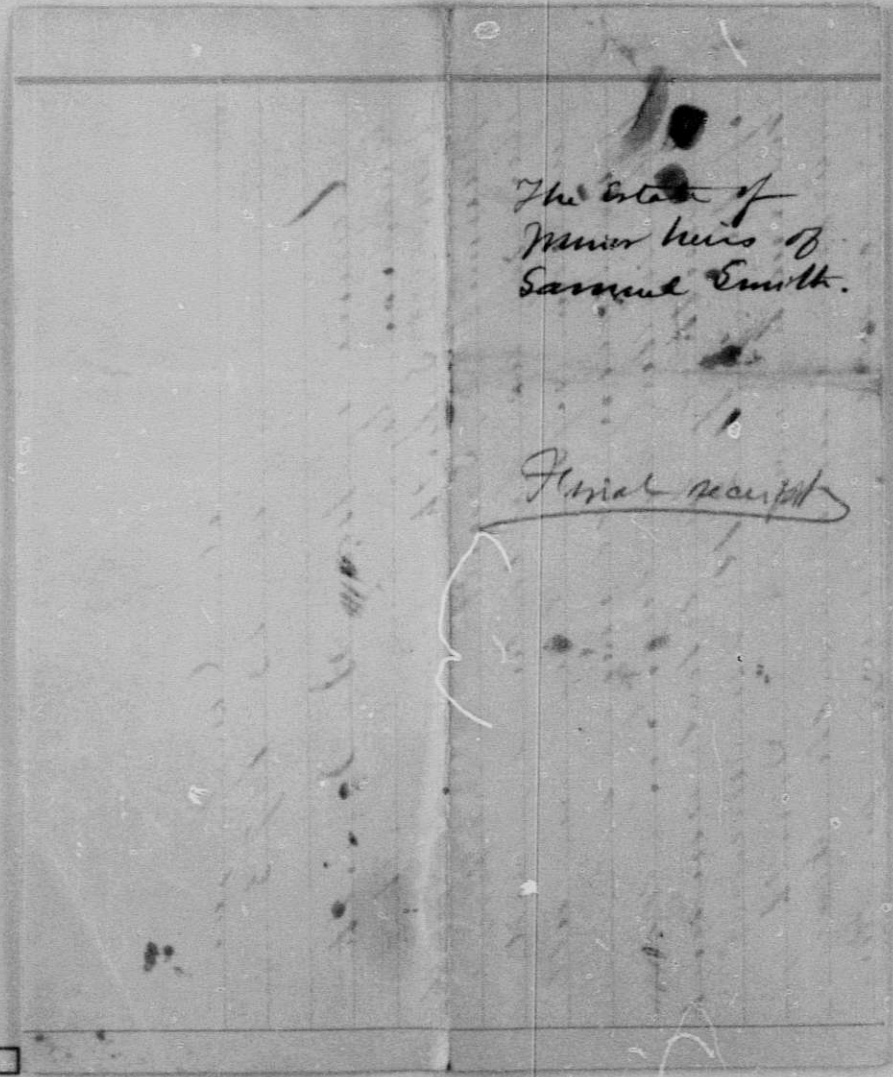 The Estate of
Minor heirs of
Samuel Smith.
Final receipt